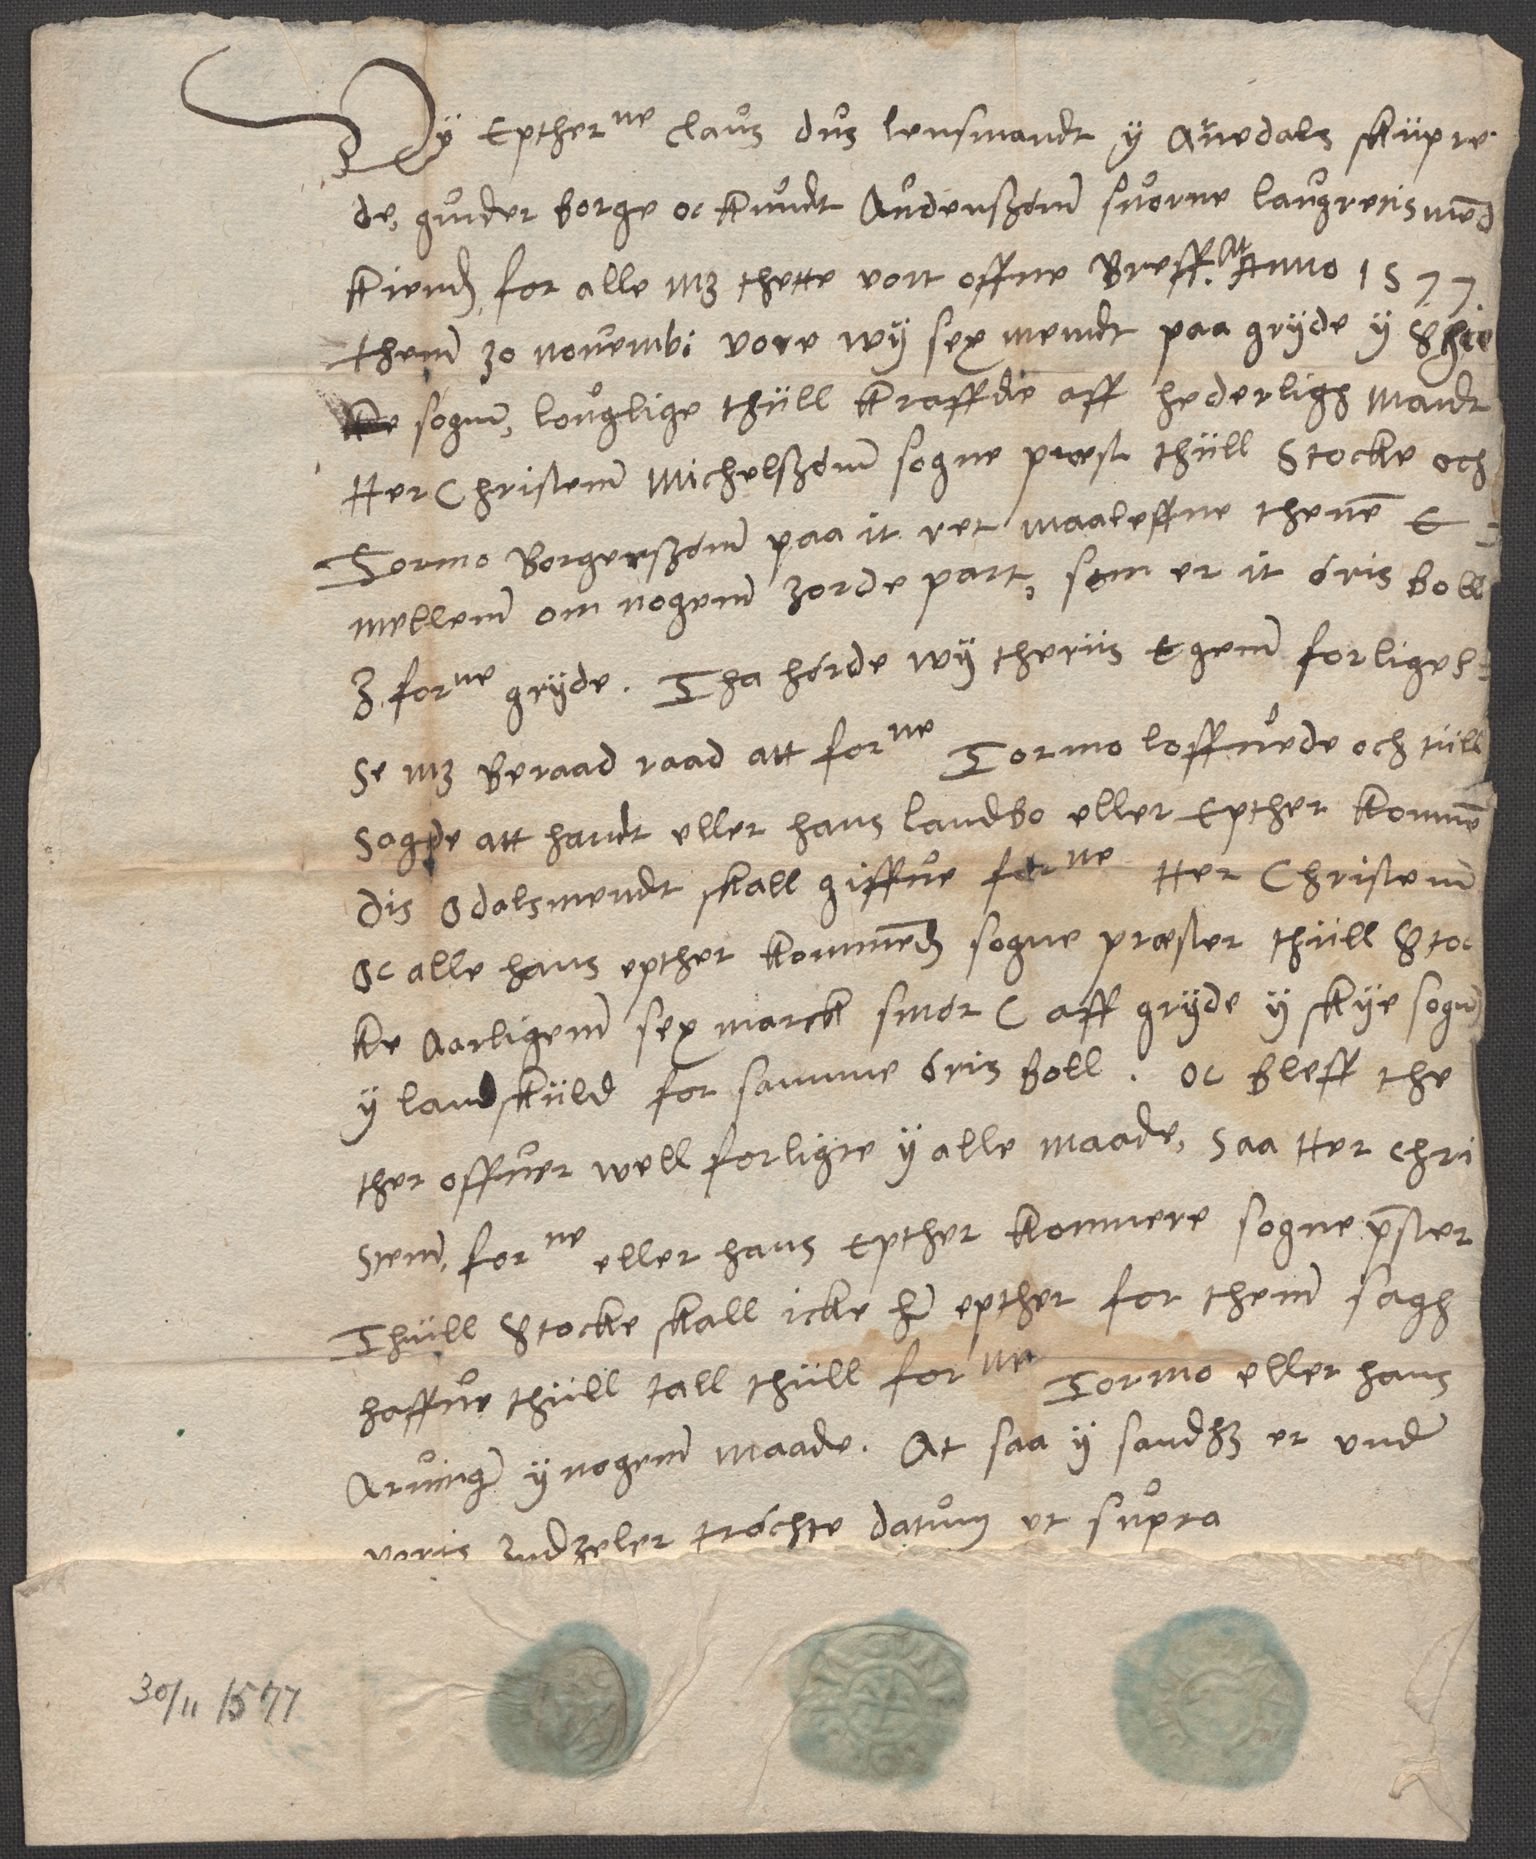 Wÿ Epther ne Claus dus lensmandt ÿ Aruedals skiipre
de, guider Borge oc Knudt Audenszønn suorne laugretismed
Kiend for alle mz thette vort offne Breff. At Anno 1577
thenn 30 nouembi vore wÿ sex mendt paa grÿde ÿ
sogm, louglige thiill kraffde aff hederligh Mandt
Her Christenn Michelszønn sogne præst thiill Stocke och
Tormo Borgerszønn paa it ret maaleffne thenē E
mellem om nogenn Jorde part, som er it øris boll
J. for ne grÿde. Tha hørde wÿ theriis Egenn forligel
se mz Beraad raad att for ne Tormo loffuede och tiill
sagde att handt eller hans landbo eller Epther kommē
dis Odalsmendt skall giffue for ne Her Christenn
Oc alle hans epther kommed sogne præster thiill Stoc
ke Aarligenn sex marck smør C aff grÿde ÿ skÿe sogn
ÿ landskiild for samme øris Boll. oc bleff the
ther offuer well forligte ÿ alle maade, saa Her Chri
stenn, for ne eller hans Epther kommere sogne pster
Thiill Stocke skall icke her epther for thenn sagh
haffue thiill tall thiill for ne Tormo eller hans
Aruinger ÿ nogenn maade. At saa ÿ sandhz er under
voris Indzeler trøchte datum ut supra
30/11 1577